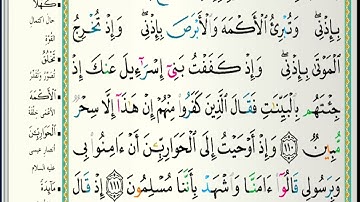 بِإِذْنِي ۖ وَتُبْرِئُ الْأَكْمَهَ وَالْأَبْرَصَ بِإِذْنِي ۖ وَإِذْ تُخْرِجُ
الْمَوْتَىٰ بِإِذْنِي ۖ وَإِذْ كَفَفْتُ بَنِي إِسْرَائِيلَ عَنكَ إِذْ
جِئْتَهُم بِالْبَيِّنَاتِ فَقَالَ الَّذِينَ كَفَرُوا مِنْهُمْ إِنْ هَٰذَا إِلَّا سِحْرٌ
مُّبِينٌ ١١٠ وَإِذْ أَوْحَيْتُ إِلَى الْحَوَارِيِّينَ أَنْ آمِنُوا بِي
وَبِرَسُولِي قَالُوا آمَنَّا وَاشْهَدْ بِأَنَّنَا مُسْلِمُونَ ١١١ إِذْ قَالَ
كَهْلًا
حال اكتمال
القوة
تَخْلُقُ
تُصَوِّر وتُقَدِّر
الْأَكْمَهَ
الأعمى خِلْقَة
الْحَوَارِيِّينَ
أنصار عيسى
عليه السلام
مَائِدَةً